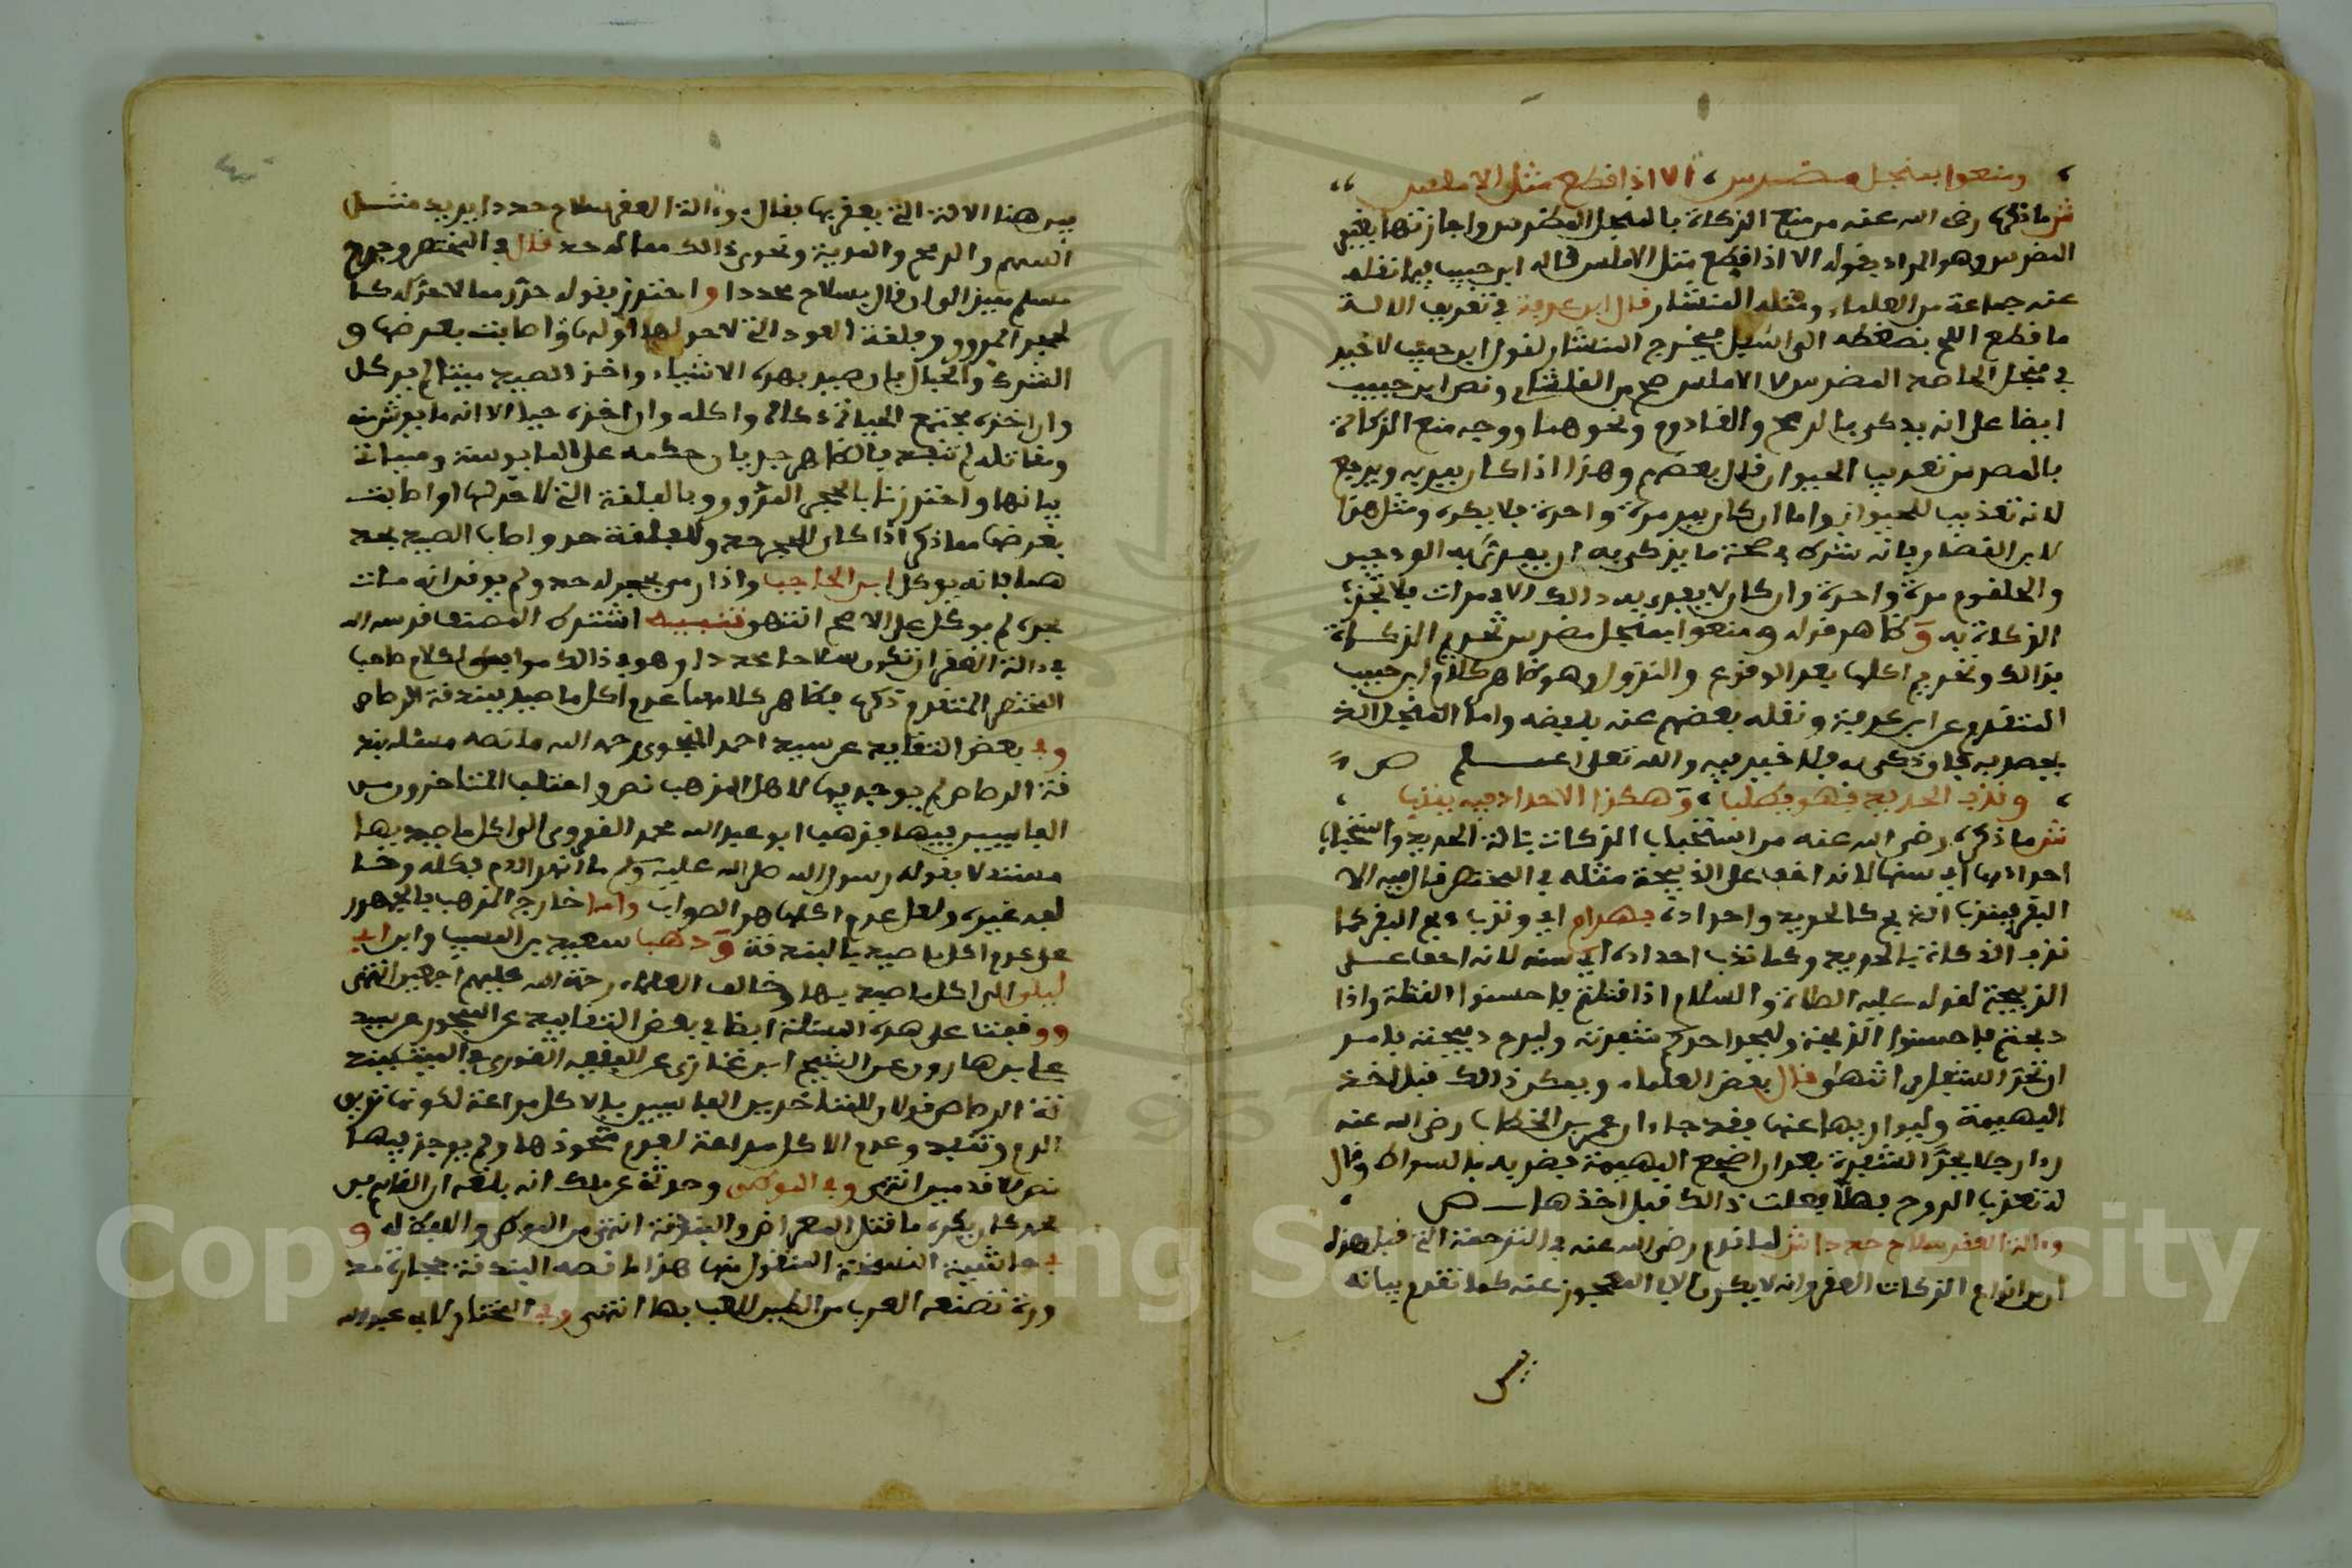 ومنعوا بمنجل مضرس، الا اذا قطع مثل الاملس
ش ما ذكره رضى الله عنه من منع الزكاة بالمنجل المضرس واجازتها بغير
المضرس وهو المراد بقوله الا اذا قطع مثل الاملس قاله ابن حبيب فيما نقله
عنه جماعة من العلماء ومثله المنشار قال ابن عرفة في تعريف الالة
ما قطع اللحم بضغطه الى اسفل فيخرج المنشار لقول ابن حبيب لا خير
في منجل الحاصد المضرس لا الاملس صح من القلشاني ونص ابن حبيب
ايضا على انه يذكى بالرمح والقادوم ونحوهما ووجه منع الزكاة
بالمضرس تعذيب الحيوان قال بعضهم وهذا اذا كان يمر به ويرجع
لانه تعذيب للحيوان واما ان كان يمر مرة واحدة فلا يكره ومثل هذا
لابن القصار بانه شرط في صحة ما يزكى به ان يفرى به الودجين
والحلقوم مرة واحدة وان كان لا يفرى به ذالك الا في مرات فلا تجزئ
الزكاة به وظاهر قوله ومنعوا بمنجل مضرس تحريم الزكاة
بذالك وتحريم اكلها بعد الوقوع والنزول وهو ظاهر كلام ابن حبيب
المتقدم عن ابن عرفة ونقله بعضهم عنه بلفظه واما المنجل الذي
يحصد به
وندب الحديد فهو يطلب، وهكذا الاحداد فيه يندب
ش ما ذكره رضى الله عنه من استحباب الزكاة بالة الحديد واستحباب
احدادها اي سنها لانه اخف على الذبيحة مثله في المختصر قال فيه الا
البقر فيندب الذبح كالحديد واحداده بهرام اي وندب ذبح البقر كما
ندب الذكاة بالحديد وكما ندب احداده اي سنه لانه اخف على
الذبيحة لقوله عليه الصلاة والسلام اذا قتلتم فاحسنوا القتلة واذا
ذبحتم فاحسنوا الذبحة وليحد احدكم شفرته وليرح ذبيحته فاس
ان تحد الشفار انتهى قال بعض العلماء ويكون ذالك قبل اخذ
البهيمة وليوار بها عنها فقد جاء ان عمر بن الخطاب رضى الله عنه
رءا رجلا يحد الشفرة بعد ان اضجع البهيمة فضربه بالسواط وقال
له تعذب الروح فهلا فعلت ذالك قبل اخذها ص
وءالة العقر سلاح حددا ش لما قدم رضى الله عنه في الترجمة التي قبل هذه
ان من انواع الزكاة العقر وانه لا يكون الا للمعجوز عنه كما تقدم بيانه
بين
بين هنا الالة التي يعقر بها فقال وءالة العقر سلاح حددا يريد مثل
السهم والرمح والحربة ونحو ذالك مما له حد قال في المختصر وجرح
مسلم مميز الى ان قال بسلاح محدد واحترز بقوله حدد مما لا حد له كما
لحجر المدور وفلقة العود التي لا حد لها او لها واصابت بعرضها و
الشرك والحبال فان صيد بهذه الاشياء واخذ الصيد ميتا لم يوكل
وان اخذه مجتمع الحياة ذكاه واكله وان اخذه حيا الا انه مايوس منه
ومقاتله لم تنفذ فالظاهر جريان حكمه على المايوسة وسياتي
بيانها واحترزنا بالحجر المدور وبالفلقة التي لا حد لها او اصابت
بعرضها مما ذكر اذا كان للحجر حد وللفلقة حد واصاب الصيد بحد
هما فانه يوكل ابن الحاجب واذا رمى بحجر له حد ولم يوقن انه مات
بحده لم يوكل على الاصح انتهى تنبيه اشترط المصنف قدس الله
في ءالة العقر ان تكون سلاحا محددا وهو في ذالك موافق لكلام صاحب
المختصر المتقدم ذكره فظاهر كلامهما عدم اكل ما صيد ببندقة الرصاص
وفي بعض التقاييد عن سيد احمد المنجور رحمه الله ما نصه مسئلة بند
قة الرصاص لم يوجد فيها لاهل المذهب نص واختلف المتاخرون من
الفاسيين فيها فذهب ابو عبد الله محمد القورى الى اكل ما صيد بها
مستدلا بقوله رسول الله صلى الله عليه وسلم ما انهر الدم فكله وخا
لفه غيره ولعل عدم اكلها هو الصواب واما خارج المذهب فالجمهور
على عدم اكل ما صيد بالبندقة وذهب سعيد بن المسيب وابن ابي
ليلى الى اكل ما صيد بها وخالف العلماء رحمة الله عليهم اجمعين انتهى
ووقفنا على هذه المسئلة ايضا في بعض التقاييد عن المنجور عن سيد
على بن هارون عن الشيخ ابن غازى عن الفقيه القورى في الميت ببند
قة الرصاص قولان للمتاخرين الفاسيين فالاكل مراعة لكونها تريق
الدم وتنفذ وعدم الاكل مراعة لعدم تحددها ولم يوجد فيها
نص لاقدمين انتهى وفي الموطى وحدثنى عن ملك انه بلغه ان القاسم بن
محمد كان يكره ما قتل المعراض والبندقة انتهى من الموطى واللفظ له و
في حاشية النسخة المنقول منها هذا ما نصه البندقة حجارة مد
ورة تصنعه العرب من الطين للعب بها انتهى وفي المختار لابي عبد الله
Copyright © King Saud University
1957